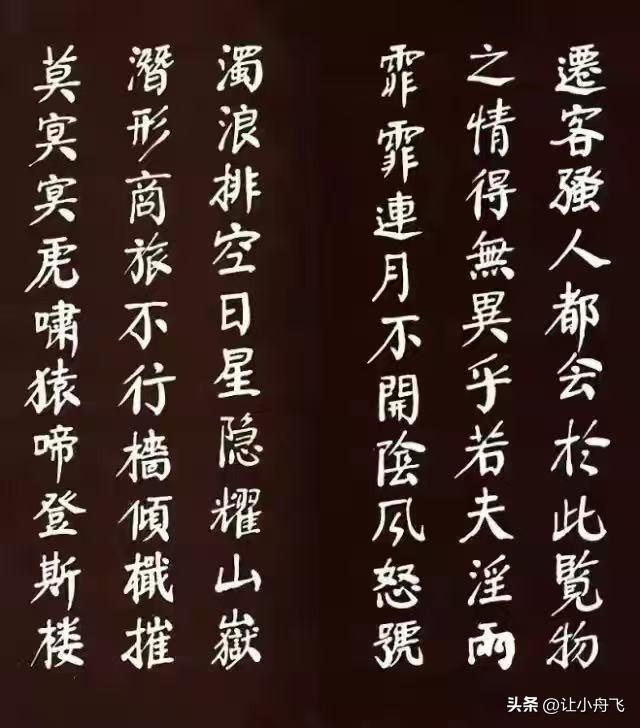 遷客騷人都会於此覽物
之情得無異乎若夫淫雨
霏霏連月不開陰风怒號
濁浪排空日星隐耀山嶽
潛形商旅不行檣傾檝摧
莫冥冥虎嘯猿啼登斯楼
头条 @让小舟飞